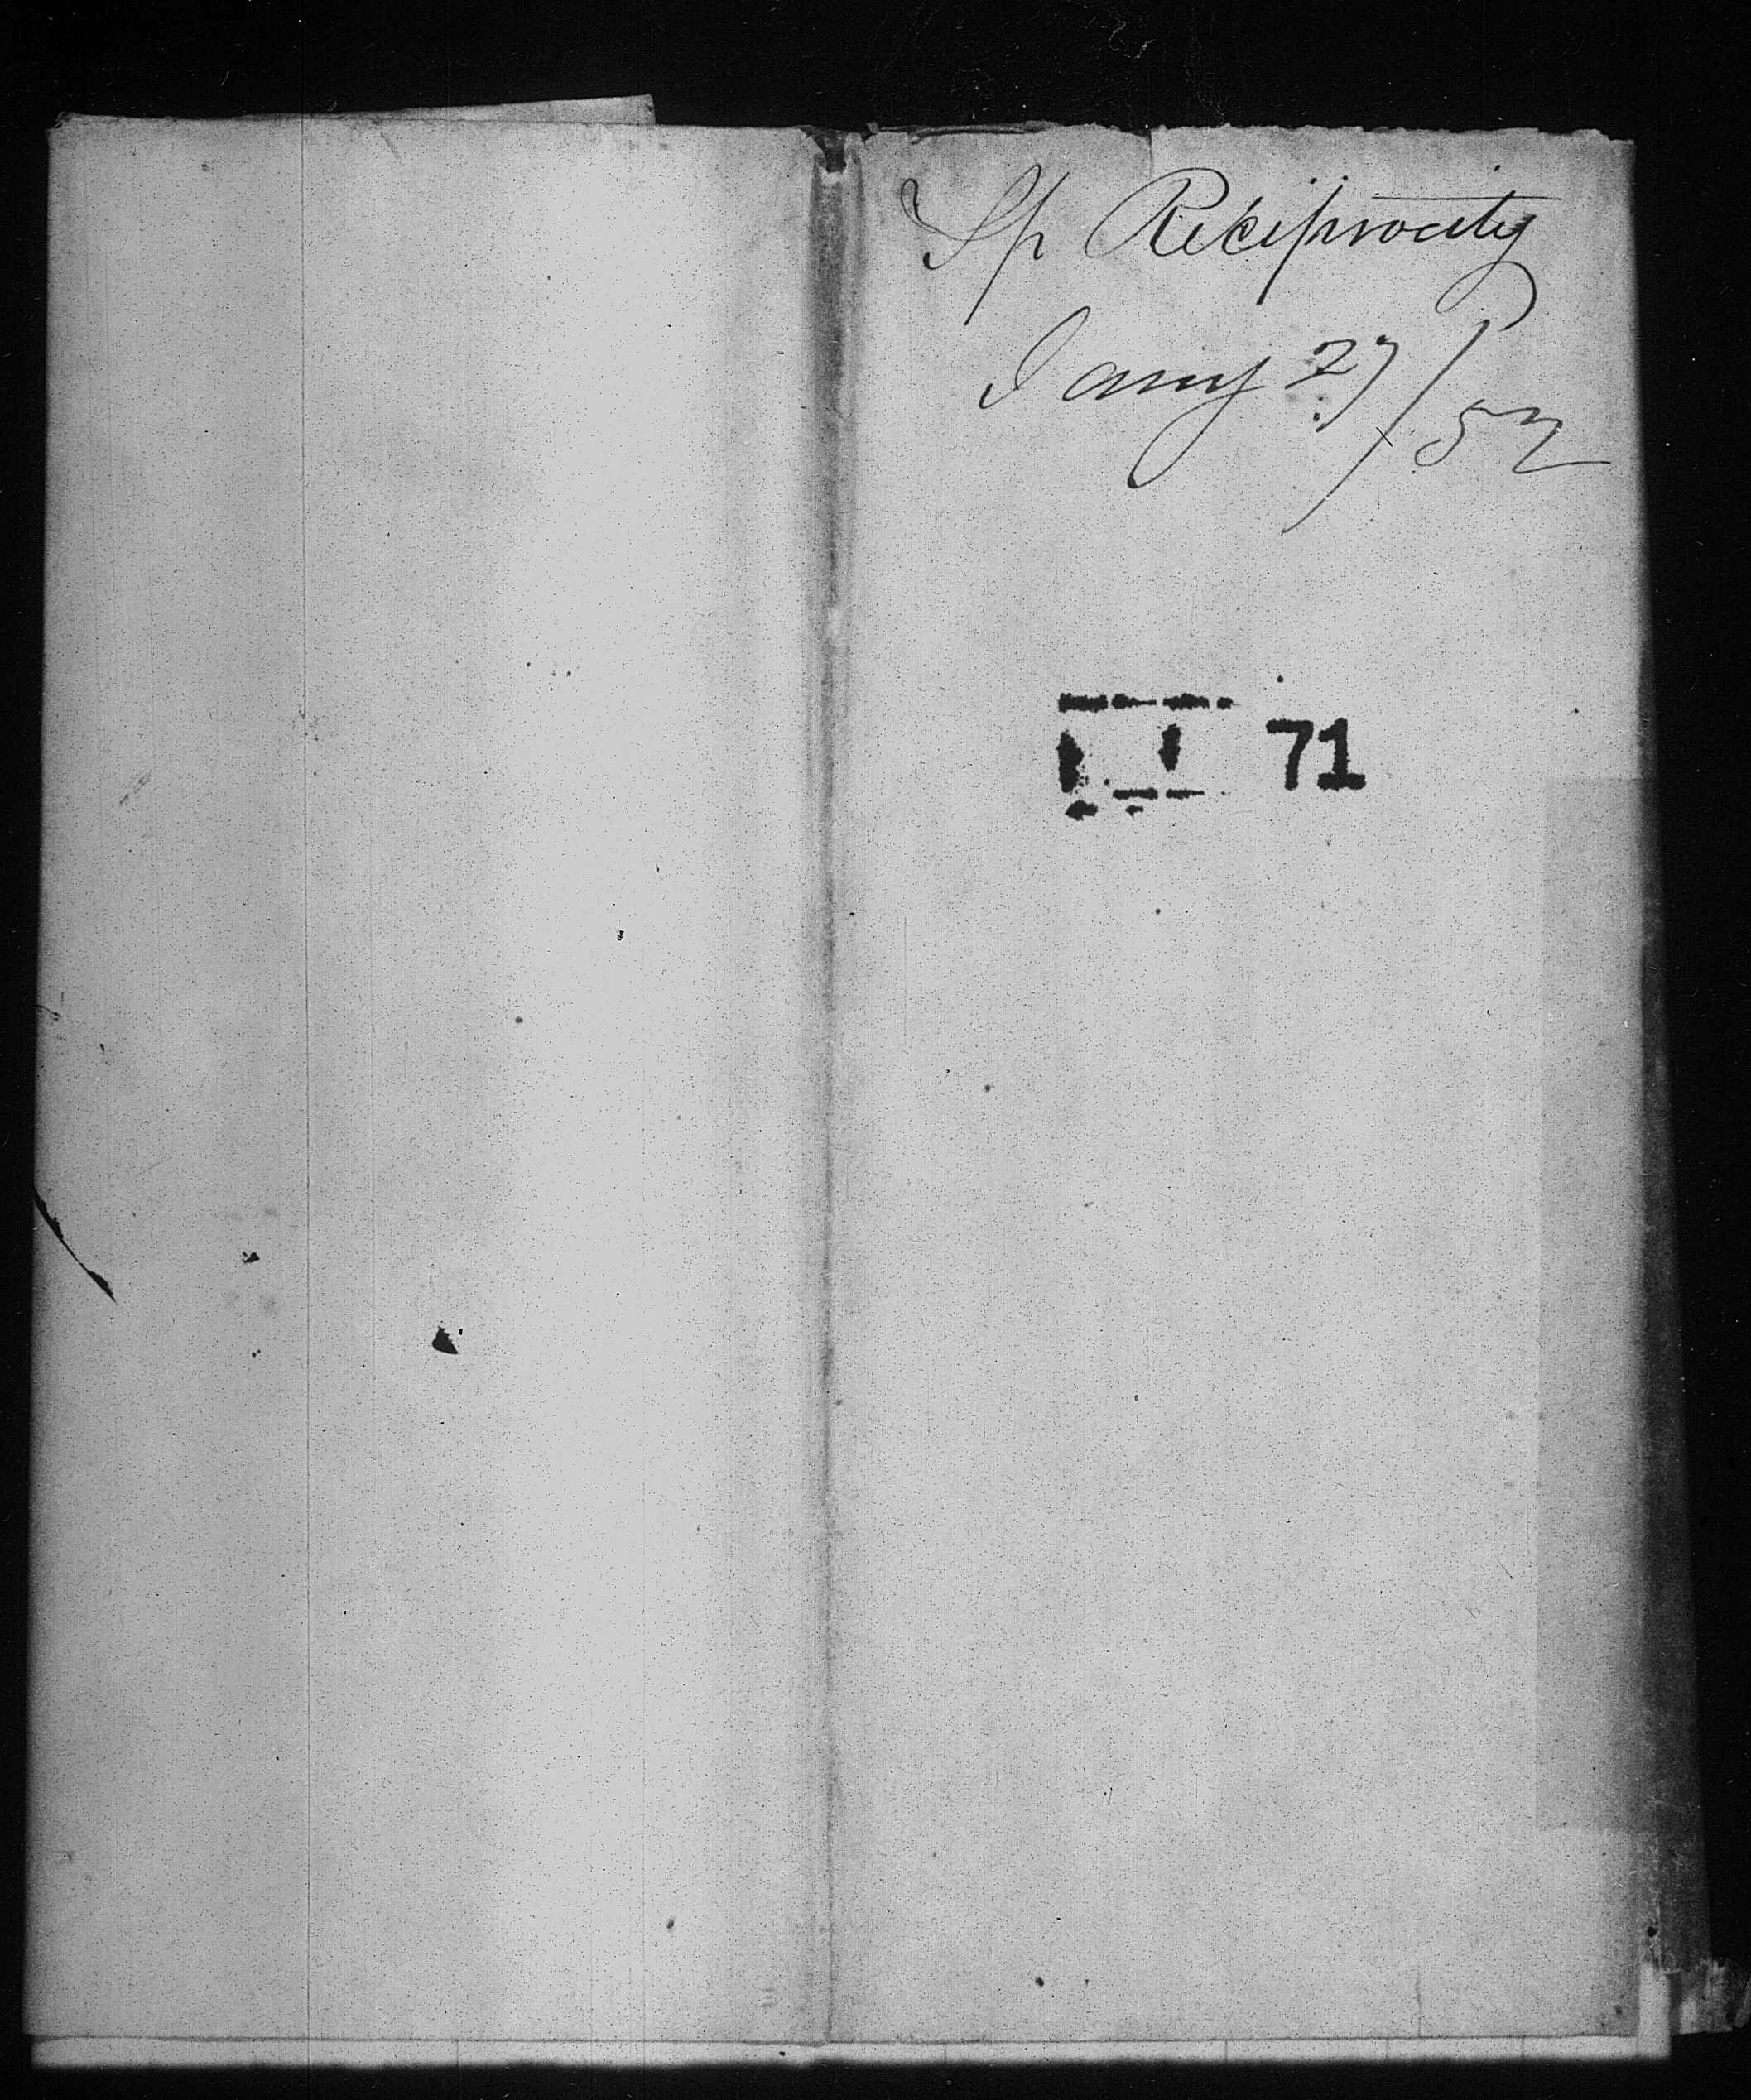 Sp Reciprocity
Jany 27/52
71